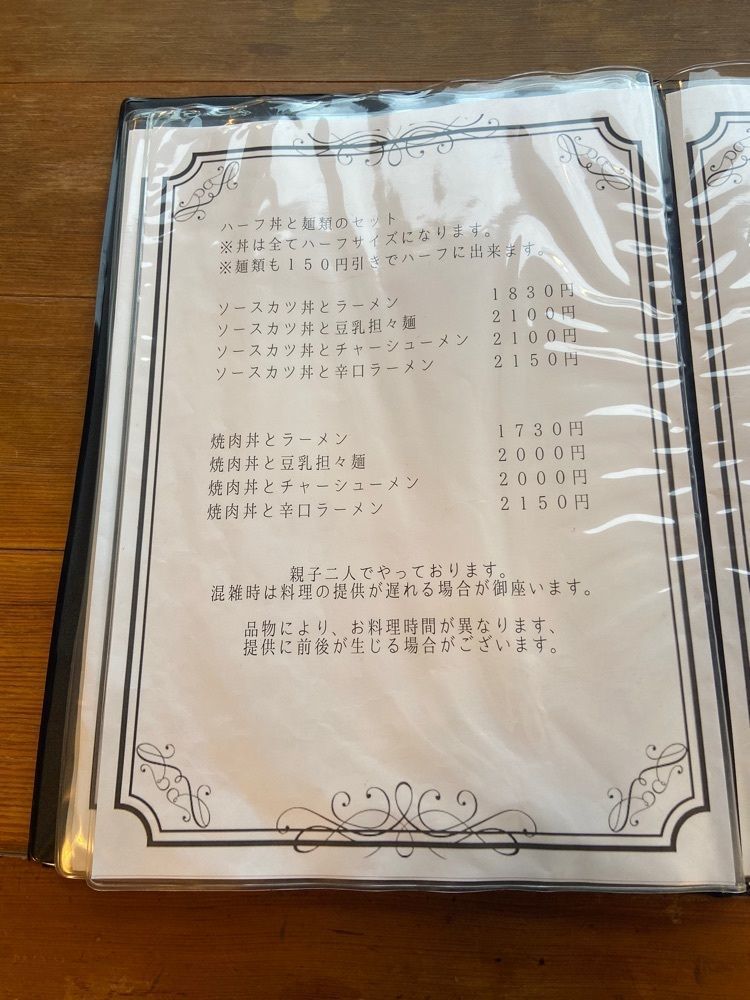 ハーフ丼と麺類のセット
※丼は全てハーフサイズになります。
※麺類も１５０円引きでハーフに出来ます。
ソースカツ丼とラーメン １８３０円
ソースカツ丼と豆乳担々麺 ２１００円
ソースカツ丼とチャーシューメン ２１００円
ソースカツ丼と辛口ラーメン ２１５０円
焼肉丼とラーメン １７３０円
焼肉丼と豆乳担々麺 ２０００円
焼肉丼とチャーシューメン ２０００円
焼肉丼と辛口ラーメン ２１５０円
親子二人でやっております。
混雑時は料理の提供が遅れる場合が御座います。
品物により、お料理時間が異なります、
提供に前後が生じる場合がございます。